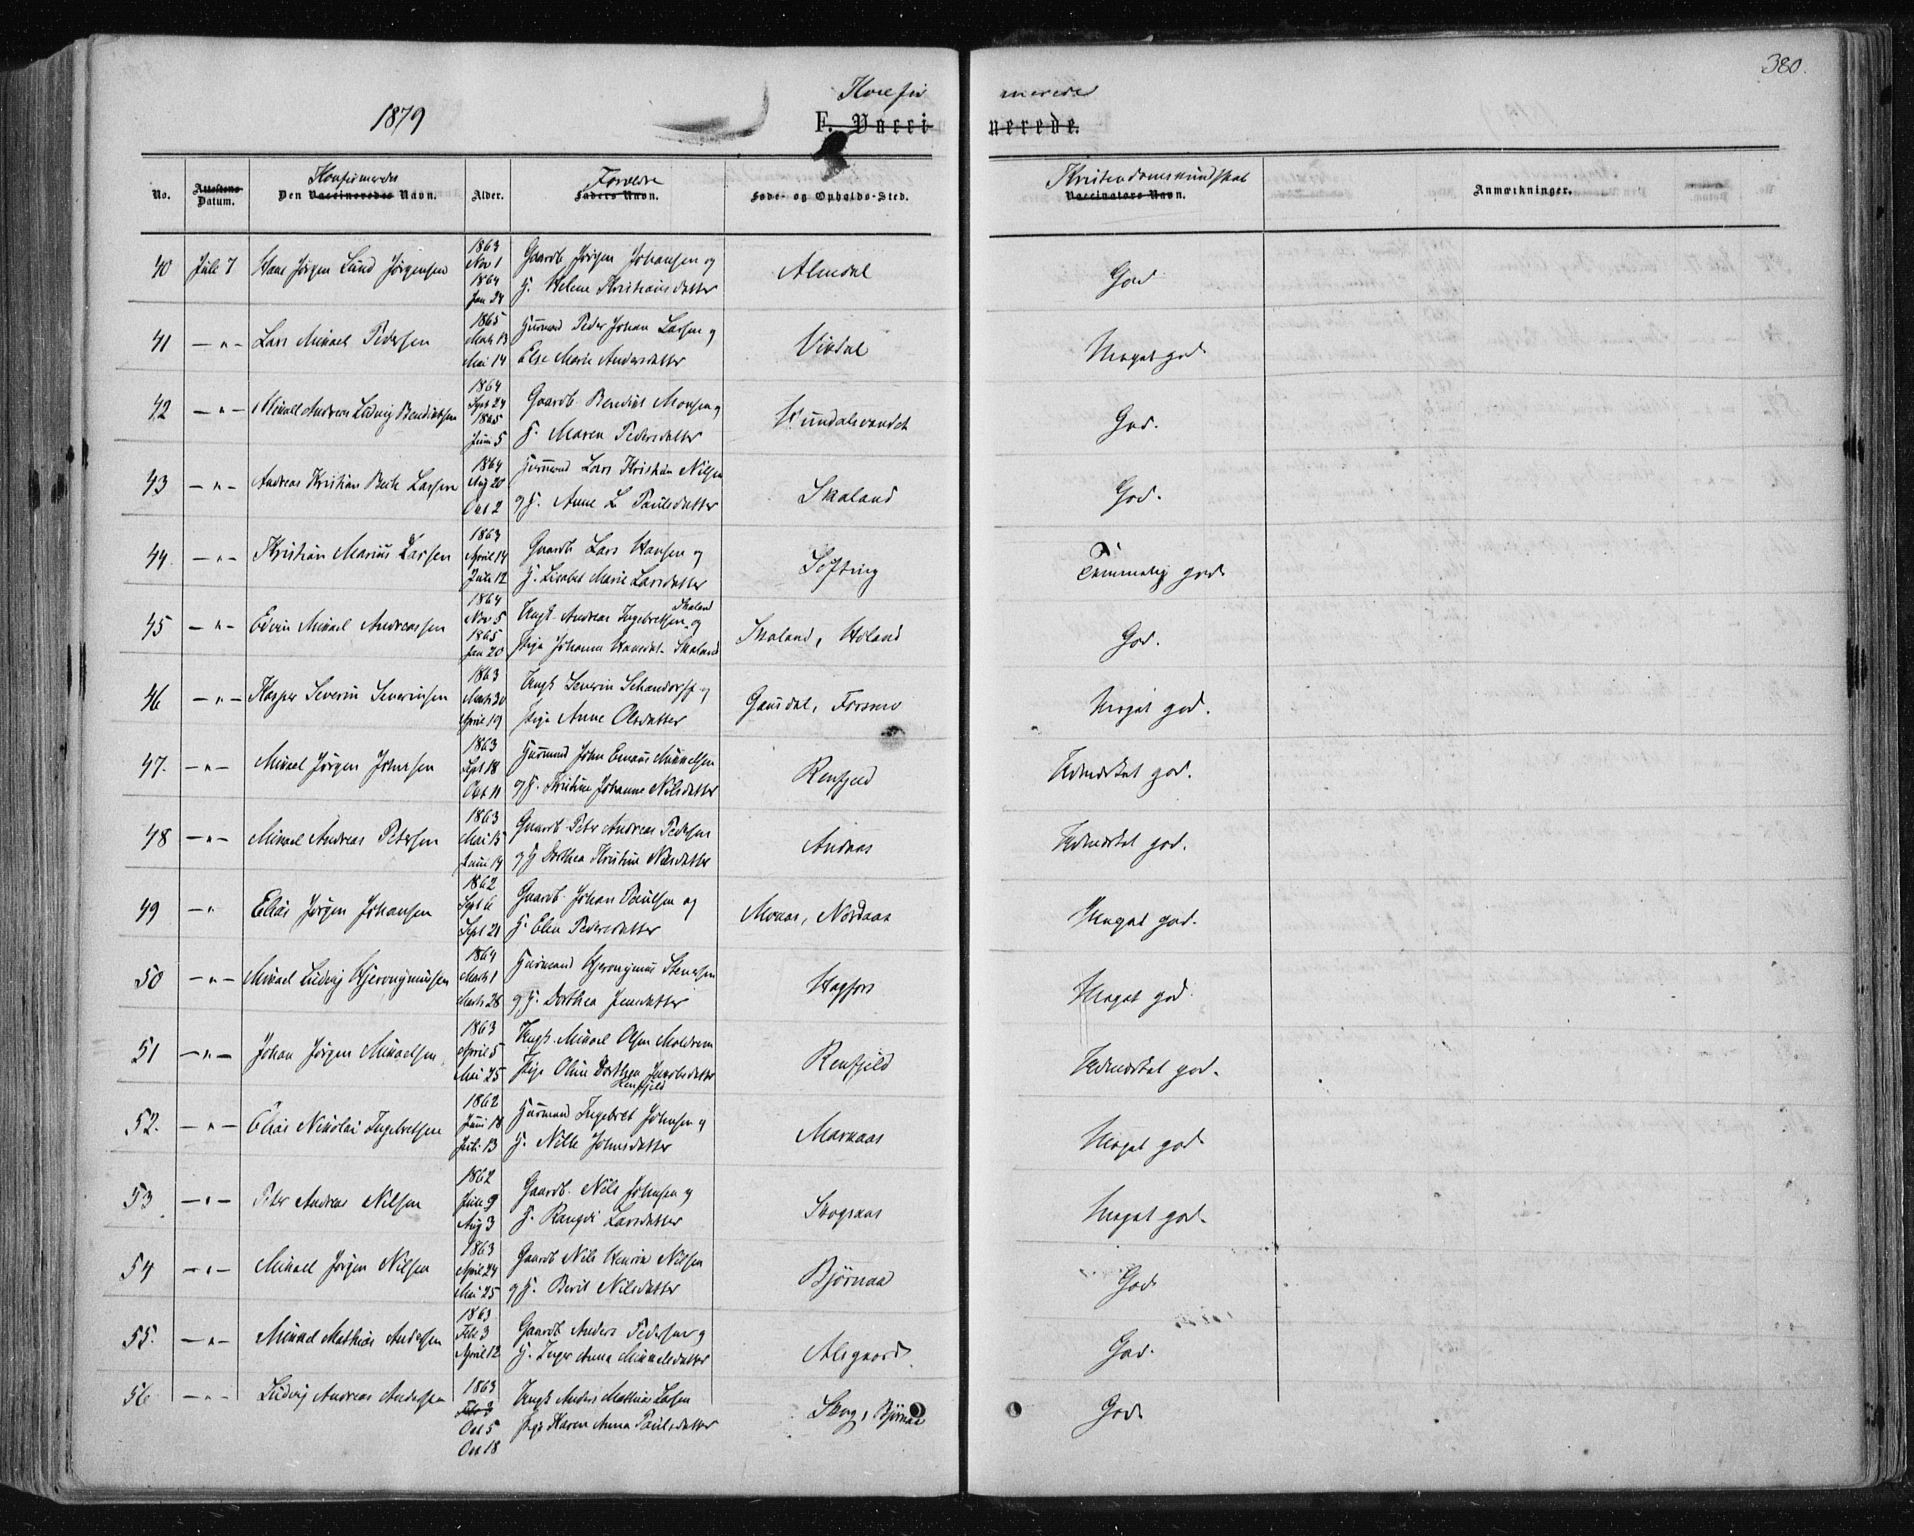 380.
1879
Konfir merede
F. Vacci nerede.
No.
Attestens Datum.
Konfirmeredes
Den Vaccineredes Navn.
Alder.
Forældre
Faders Navn.
Føde- og Opholds-Sted.
Kristendomskundskab
Vaccinators Navn.
Anmærkninger.
40 Juli 7 Hans Jørgen Lund Jørgensen 1863 Nov 1 1864 Jan 24 Gaardb Jørgen Johansen og H. Helene Kristiansdatter Almdal God
41 — " — Lars Mikael Pedersen 1865 Marts 13 Mai 14 Huusmand Peder Johan Larsen og Else Marie Andersdatter Visdal Meget god
42 — " — Mikael Andreas Ludvig Benediktsen 1864 Sept 24 1865 Juni 5 Gaardb. Benedikt Monsen og H. Maren Pedersdatter Hundalsvandet God.
43 — " — Andreas Kristian Beck Larsen 1864 Aug 20 Oct 2 Huusmand Lars Kristian Nilsen og H. Anne L Paulsdatter Skaland God.
44. — " — Kristian Marius Larsen 1863 April 14 Juli 12 Gaardb Lars Hansen og H. Lisabet Marie Larsdatter Softing Temmelig god
45 — " — Edvin Mikael Andreassen 1864 Nov 5 1865 Jan 20 Ungk. Andreas Ingebretsen Skaland og Pige Johanna Hansdat. Skaland Skaland, Holand God.
46 — " — Kasper Severin Severinsen 1863 Marts 30 April 19 Ungk Severin Schandorff og Pige Anne Olsdatter Gausdal, Forsmo Meget god.
47. — " — Mikael Jørgen Johnsen 1863 Sept 18 Oct 11 Huusmand John Emaus Mikkelsen og H. Kristine Johanne Nilsdatter Renfjeld Udmærket god.
48 — " — Mikael Andreas Petersen 1863 Mai 15 Juni 14 Gaardb. Peter Andreas Pedersen og H Dorthea Kristine Nilsdatter Andaas Udmærket god.
49 — " Elias Jørgen Johansen 1862 Sept 6 Sept 21 Gaardb. Johan Paulsen og H. Elen Pedersdatter Moaas, Nordaas Meget god.
50 — " — Mikael Ludvig Hjeronymussen 1864 Marts 1 Marts 28 Huusmand Hjeronymus Stenersen og H. Dorthea Jensdatter Hagfors Meget god.
51 — " — Johan Jørgen Mikaelsen 1863 April 5 Mai 25 Ungk. Mikael Olsen Moldrem Pige Oline Dorthea Jakobsdatter Renfjeld Renfjeld Udmærket god.
52. — " — Elias Nikolai Ingebretsen 1862 Juni 18 Juli 13 Huusmand Ingebret Johnsen og H. Nille Johnsdatter Markaas Meget god
53 — " — Peter Andreas Nilsen 1862 Juni 9 Aug 3 Gaardb. Nils Johnsen og H. Rangdi Larsdatter Skogsaas Meget god.
54 — " — Mikael Jørgen Nilsen 1863 April 24 Mai 25 Gaardb Nils Henrik Nilsen og H. Berit Nilsdatter Bjørnaa God.
55. — " — Mikael Mathias Andersen 1863 Feb 3 April 12 Gaardb Anders Pedersen og H. Inger Anna Mikkelsdatter Alsgaard. God.
56 — " — Ludvig Andreas Andersen 1863 Feb 3 Oct 5 Oct 18 Ungk Anders Mathias Larsen Pige Karen Anna Paulsdatter Skog, Bjørnaa God.